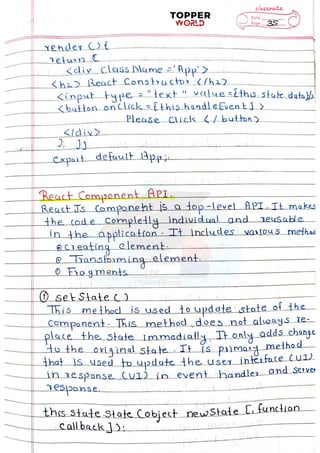 classmate
Date
Page 35
TOPPER
WORLD
render () {
return (
<div ClassName = 'App'>
<h2> React Constructor </h2>
<input type = "text" value = {this.state.data}/>
<button onClick = {this.handleEvent} >
Please Click </button>
</div>
);
}}
export default App;
React Component API.
React Js Component is a top-level API. It makes
the code Completly Individual and reusable
in the application. It Includes various method
Creating element.
Transforming element.
Fragments
① setState ( )
This method is used to update state of the
Component. This method does not always re-
place the State Immedially. It only adds change
to the original State. It is primary method
that is used to update the user interface (UI)
in response (UI) in event handler and server
response.
this.State State (object newState [, function
Callback ]);